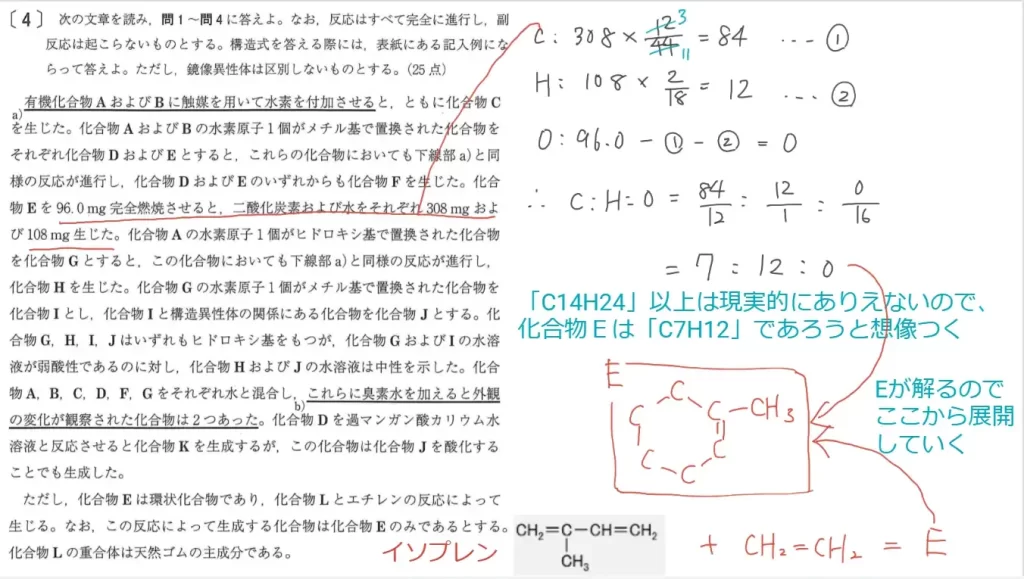 〔4〕 次の文章を読み,問1〜問4に答えよ。なお,反応はすべて完全に進行し,副
反応は起こらないものとする。構造式を答える際には,表紙にある記入例にな
らって答えよ。ただし,鏡像異性体は区別しないものとする。(25点)
有機化合物AおよびBに触媒を用いて水素を付加させると,ともに化合物C
a)
を生じた。化合物AおよびBの水素原子1個がメチル基で置換された化合物を
それぞれ化合物DおよびEとすると,これらの化合物においても下線部a)と同
様の反応が進行し,化合物DおよびEのいずれからも化合物Fを生じた。化合
物Eを96.0 mg完全燃焼させると,二酸化炭素および水をそれぞれ308 mgおよ
び108 mg生じた。化合物Aの水素原子1個がヒドロキシ基で置換された化合物
を化合物Gとすると,この化合物においても下線部a)と同様の反応が進行し,
化合物Hを生じた。化合物Gの水素原子1個がメチル基で置換された化合物を
化合物Iとし,化合物Iと構造異性体の関係にある化合物を化合物Jとする。化
合物G,H,I,Jはいずれもヒドロキシ基をもつが,化合物GおよびIの水溶
液が弱酸性であるのに対し,化合物HおよびJの水溶液は中性を示した。化合
物A,B,C,D,F,Gをそれぞれ水と混合し,これらに臭素水を加えると外観
b)
の変化が観察された化合物は2つあった。化合物Dを過マンガン酸カリウム水
溶液と反応させると化合物Kを生成するが,この化合物は化合物Jを酸化する
ことでも生成した。
ただし,化合物Eは環状化合物であり,化合物Lとエチレンの反応によって
生じる。なお,この反応によって生成する化合物は化合物Eのみであるとする。
化合物Lの重合体は天然ゴムの主成分である。
C: 308 × 12/44 = 84 ---- ①
3
11
H: 108 × 2/18 = 12 ---- ②
O: 96.0 - ① - ② = 0
∴ C:H:O = 84/12 : 12/1 : 0/16
= 7 : 12 : 0
「C14H24」以上は現実的にありえないので、
化合物Eは「C7H12」であろうと想像つく
E
C
C C-CH3
C C
C
Eが解るので
ここから展開
していく
イソプレン
CH2=C-CH=CH2
CH3
+ CH2=CH2 = E